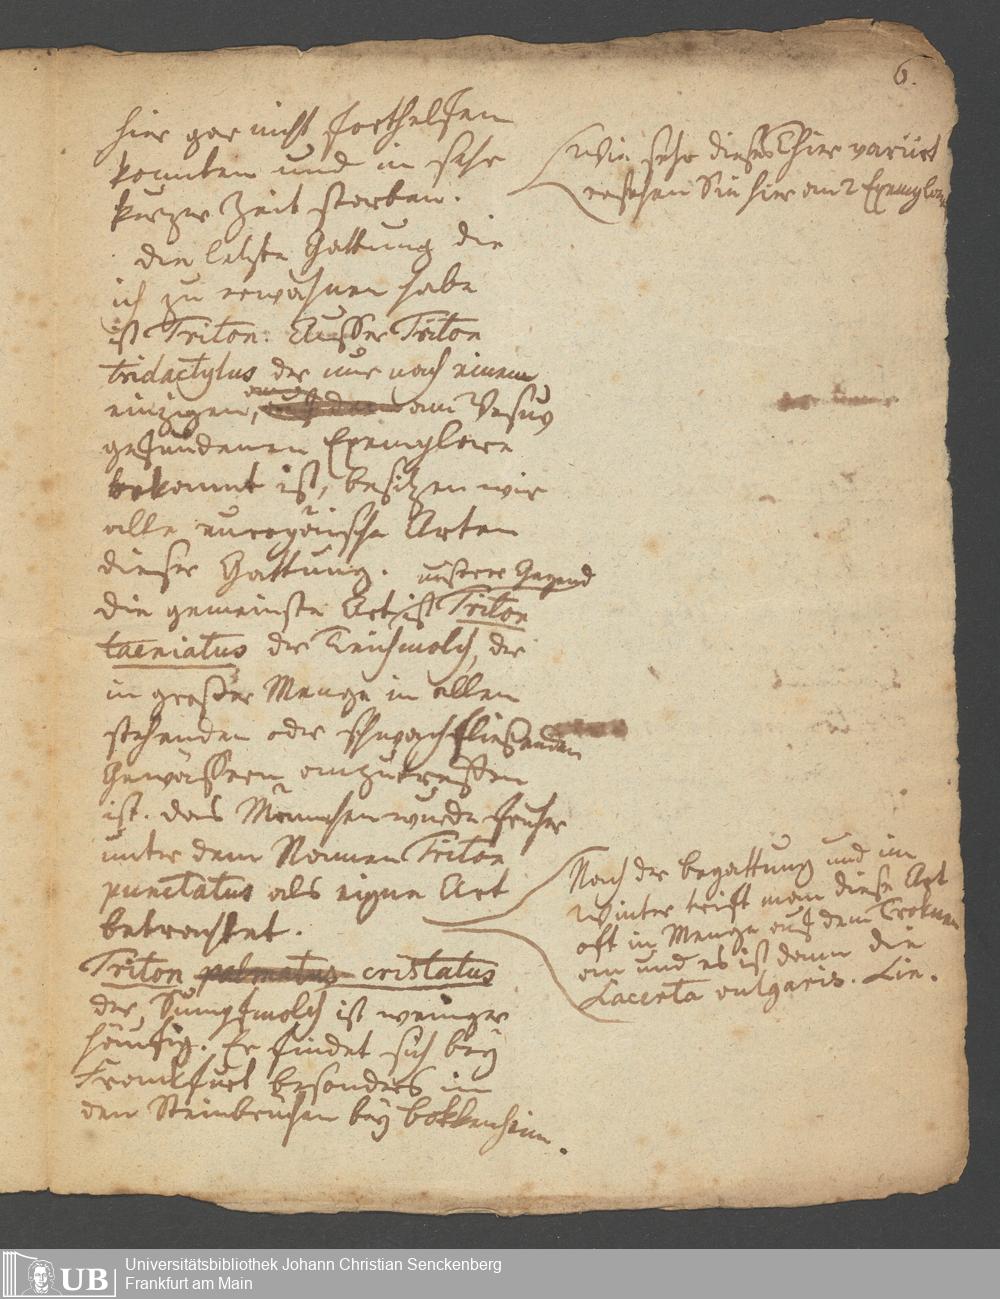 6.
hier gar nicht forthelfen
konnten und in sehr
kurzer Zeit starben.
Wie sehr dieses Thier variirt
ersehen Sie hier an 2 Exemplare
die letzte Gattung die
ich zu erwähnen habe
ist Triton. Ausser Triton
tridactylus der nur nach einem
einzigen, am Vesuv
gefundenen Exemplare
bekannt ist, besitzen wir
alle europäische Arten
dieser Gattung.
die gemeinste Art unserer Gegend ist Triton
taeniatus der Teichmolch, der
in großer Menge in allen
stehenden oder schwachfließenden
Gewässern anzutreffen
ist. das Männchen wurde früher
unter dem Namen Triton
punctatus als eigne Art
betrachtet.
Nach der begattung und im
Winter trift man diese Art
oft in Menge auf dem Troknen
an und es ist dann die
Lacerta vulgaris. Lin.
Triton palmatus cristatus
der Sumpfmolch ist weniger
häufig. Er findet sich bey
Frankfurt besonders in
den Steinbrüchen bey Bokkenheim.
UB
Universitätsbibliothek Johann Christian Senckenberg
Frankfurt am Main